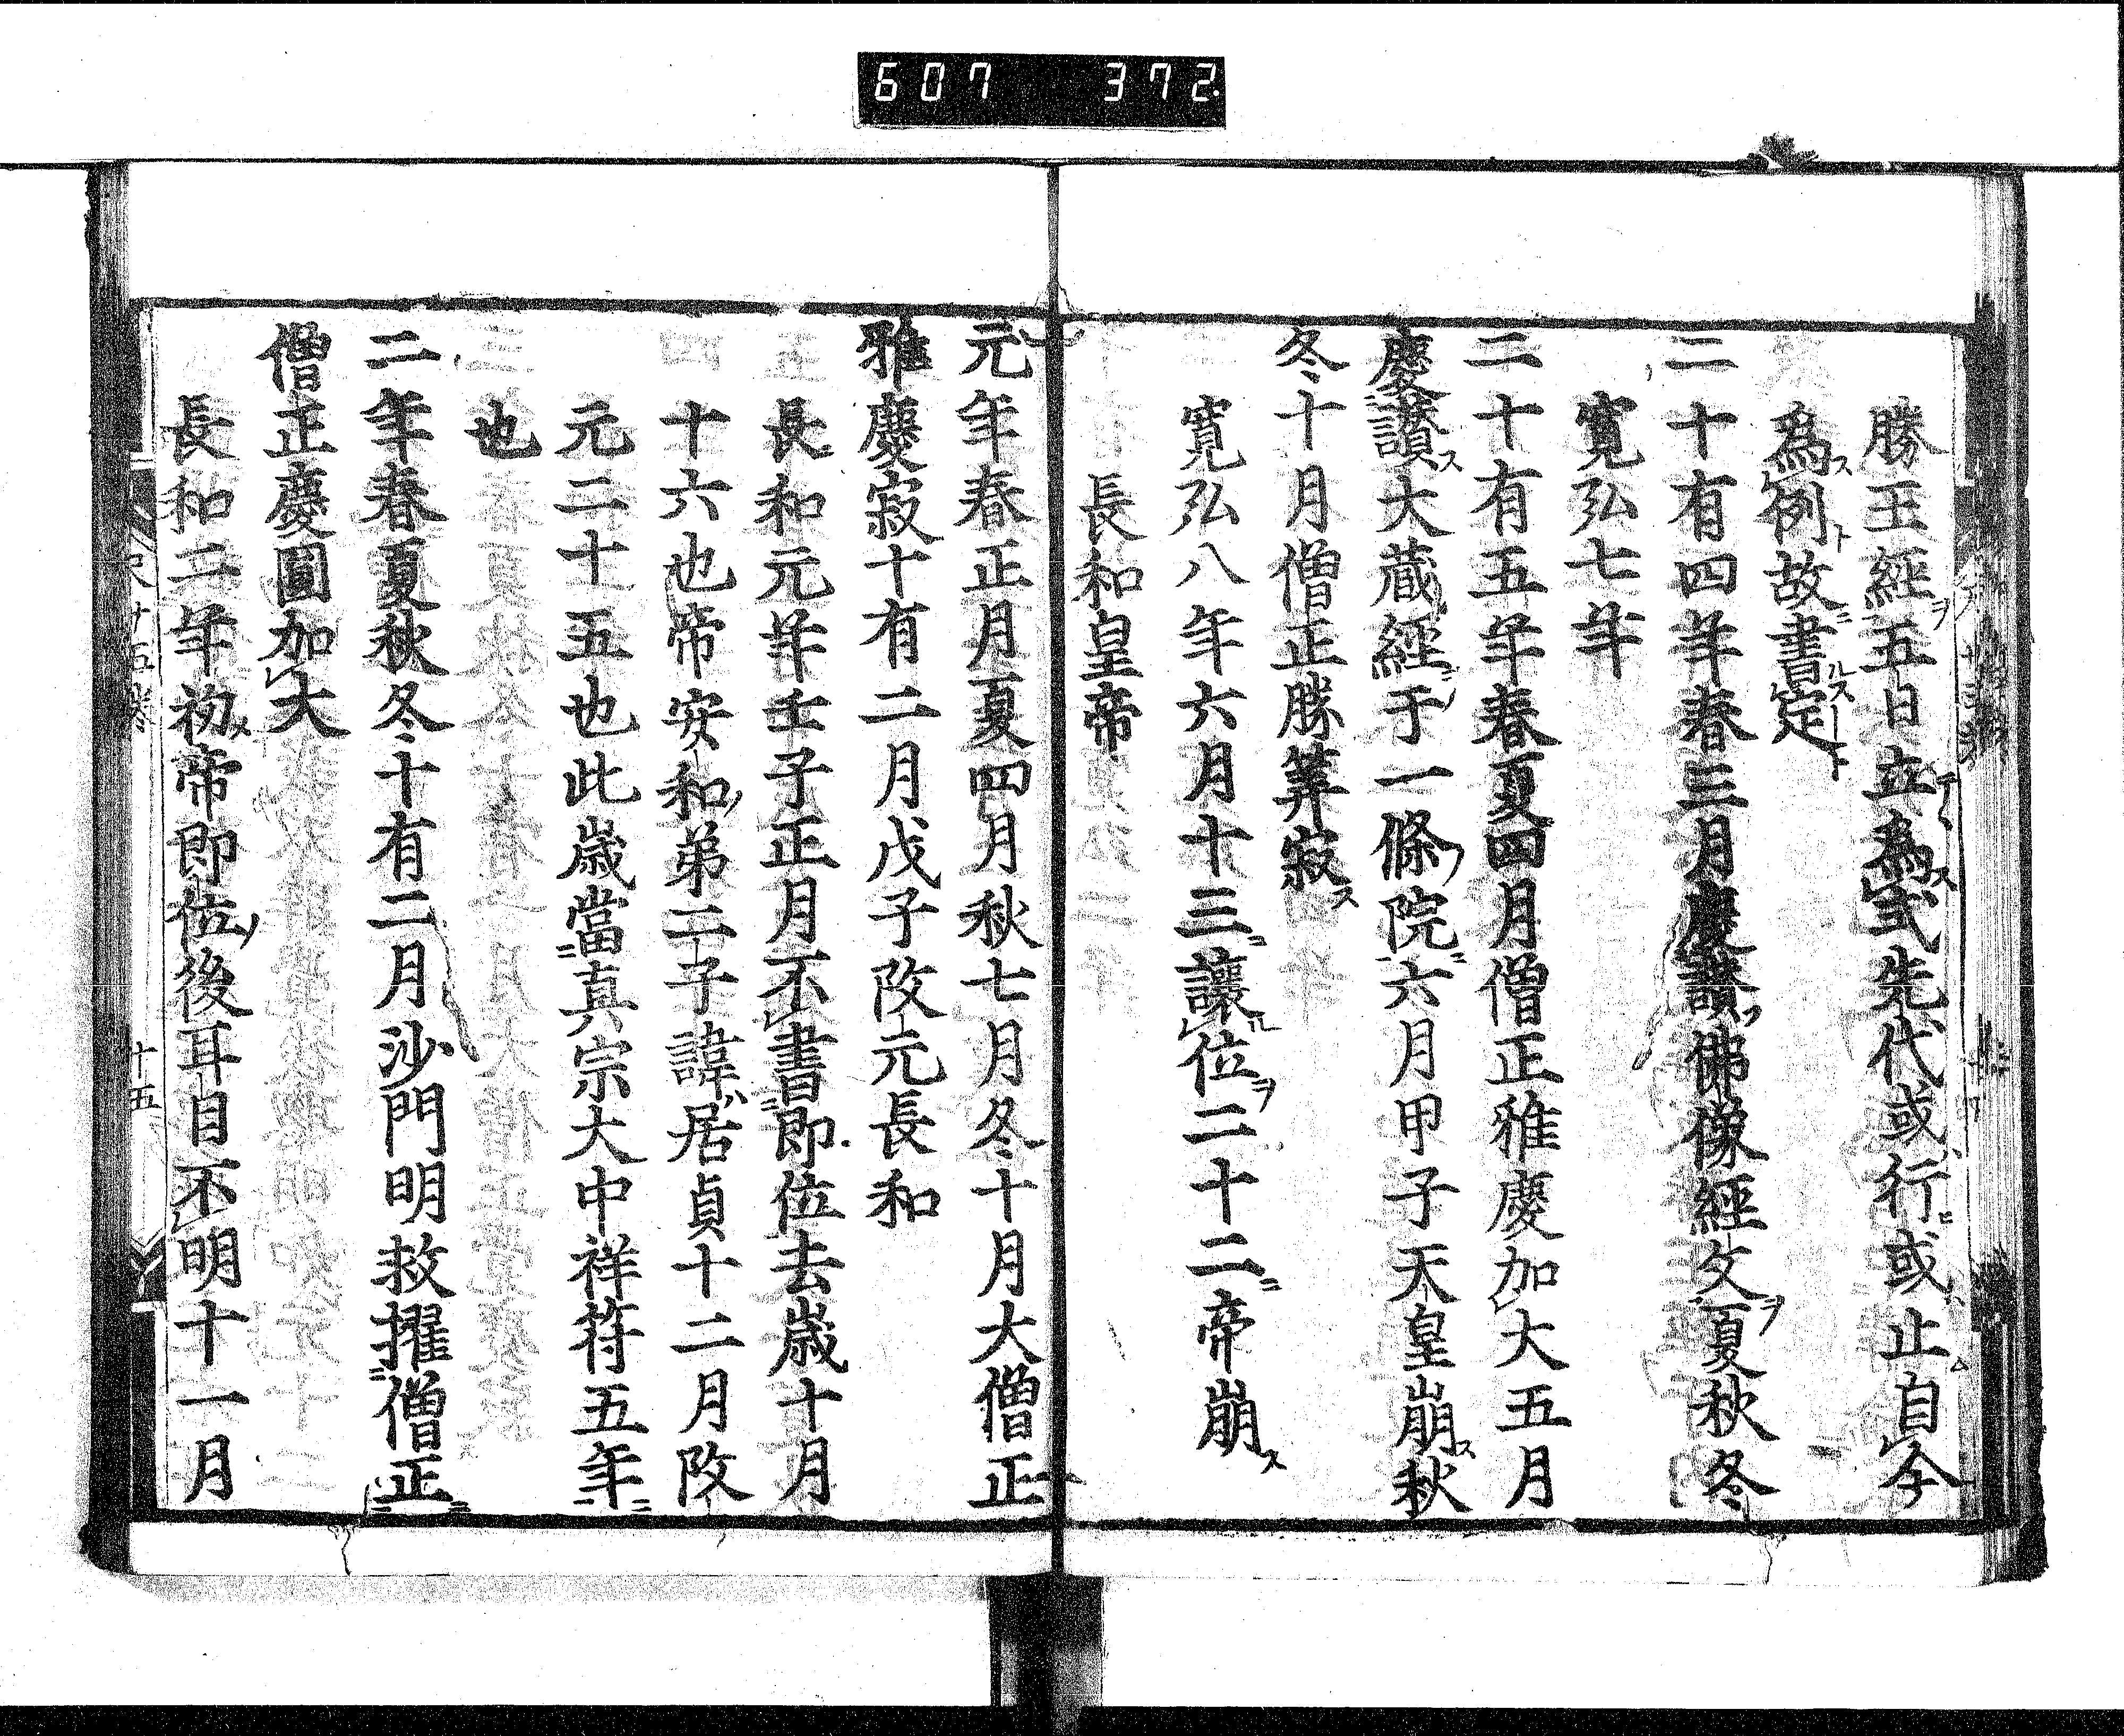 607 372.
勝王經五日立爲式先代或行或止自今
爲例故書定
二十有四年春三月慶讃佛像經文夏秋冬
寛弘七年
二十有五年春夏四月僧正雅慶加大五月
慶讃大藏經于一條院六月甲子天皇崩秋
冬十月僧正勝筭寂
寛弘八年六月十三讓位二十二帝崩
長和皇帝
元年春正月夏四月秋七月冬十月大僧正
雅慶寂十有二月戊子改元長和
長和元年壬子正月不書即位去歳十月
十六也帝安和弟二子諱居貞十二月改
元二十五也此歳當真宗大中祥符五年
也
二年春夏秋冬十有二月沙門明救擢僧正
僧正慶圓加大
長和二年初帝即位後耳目不明十一月
十五